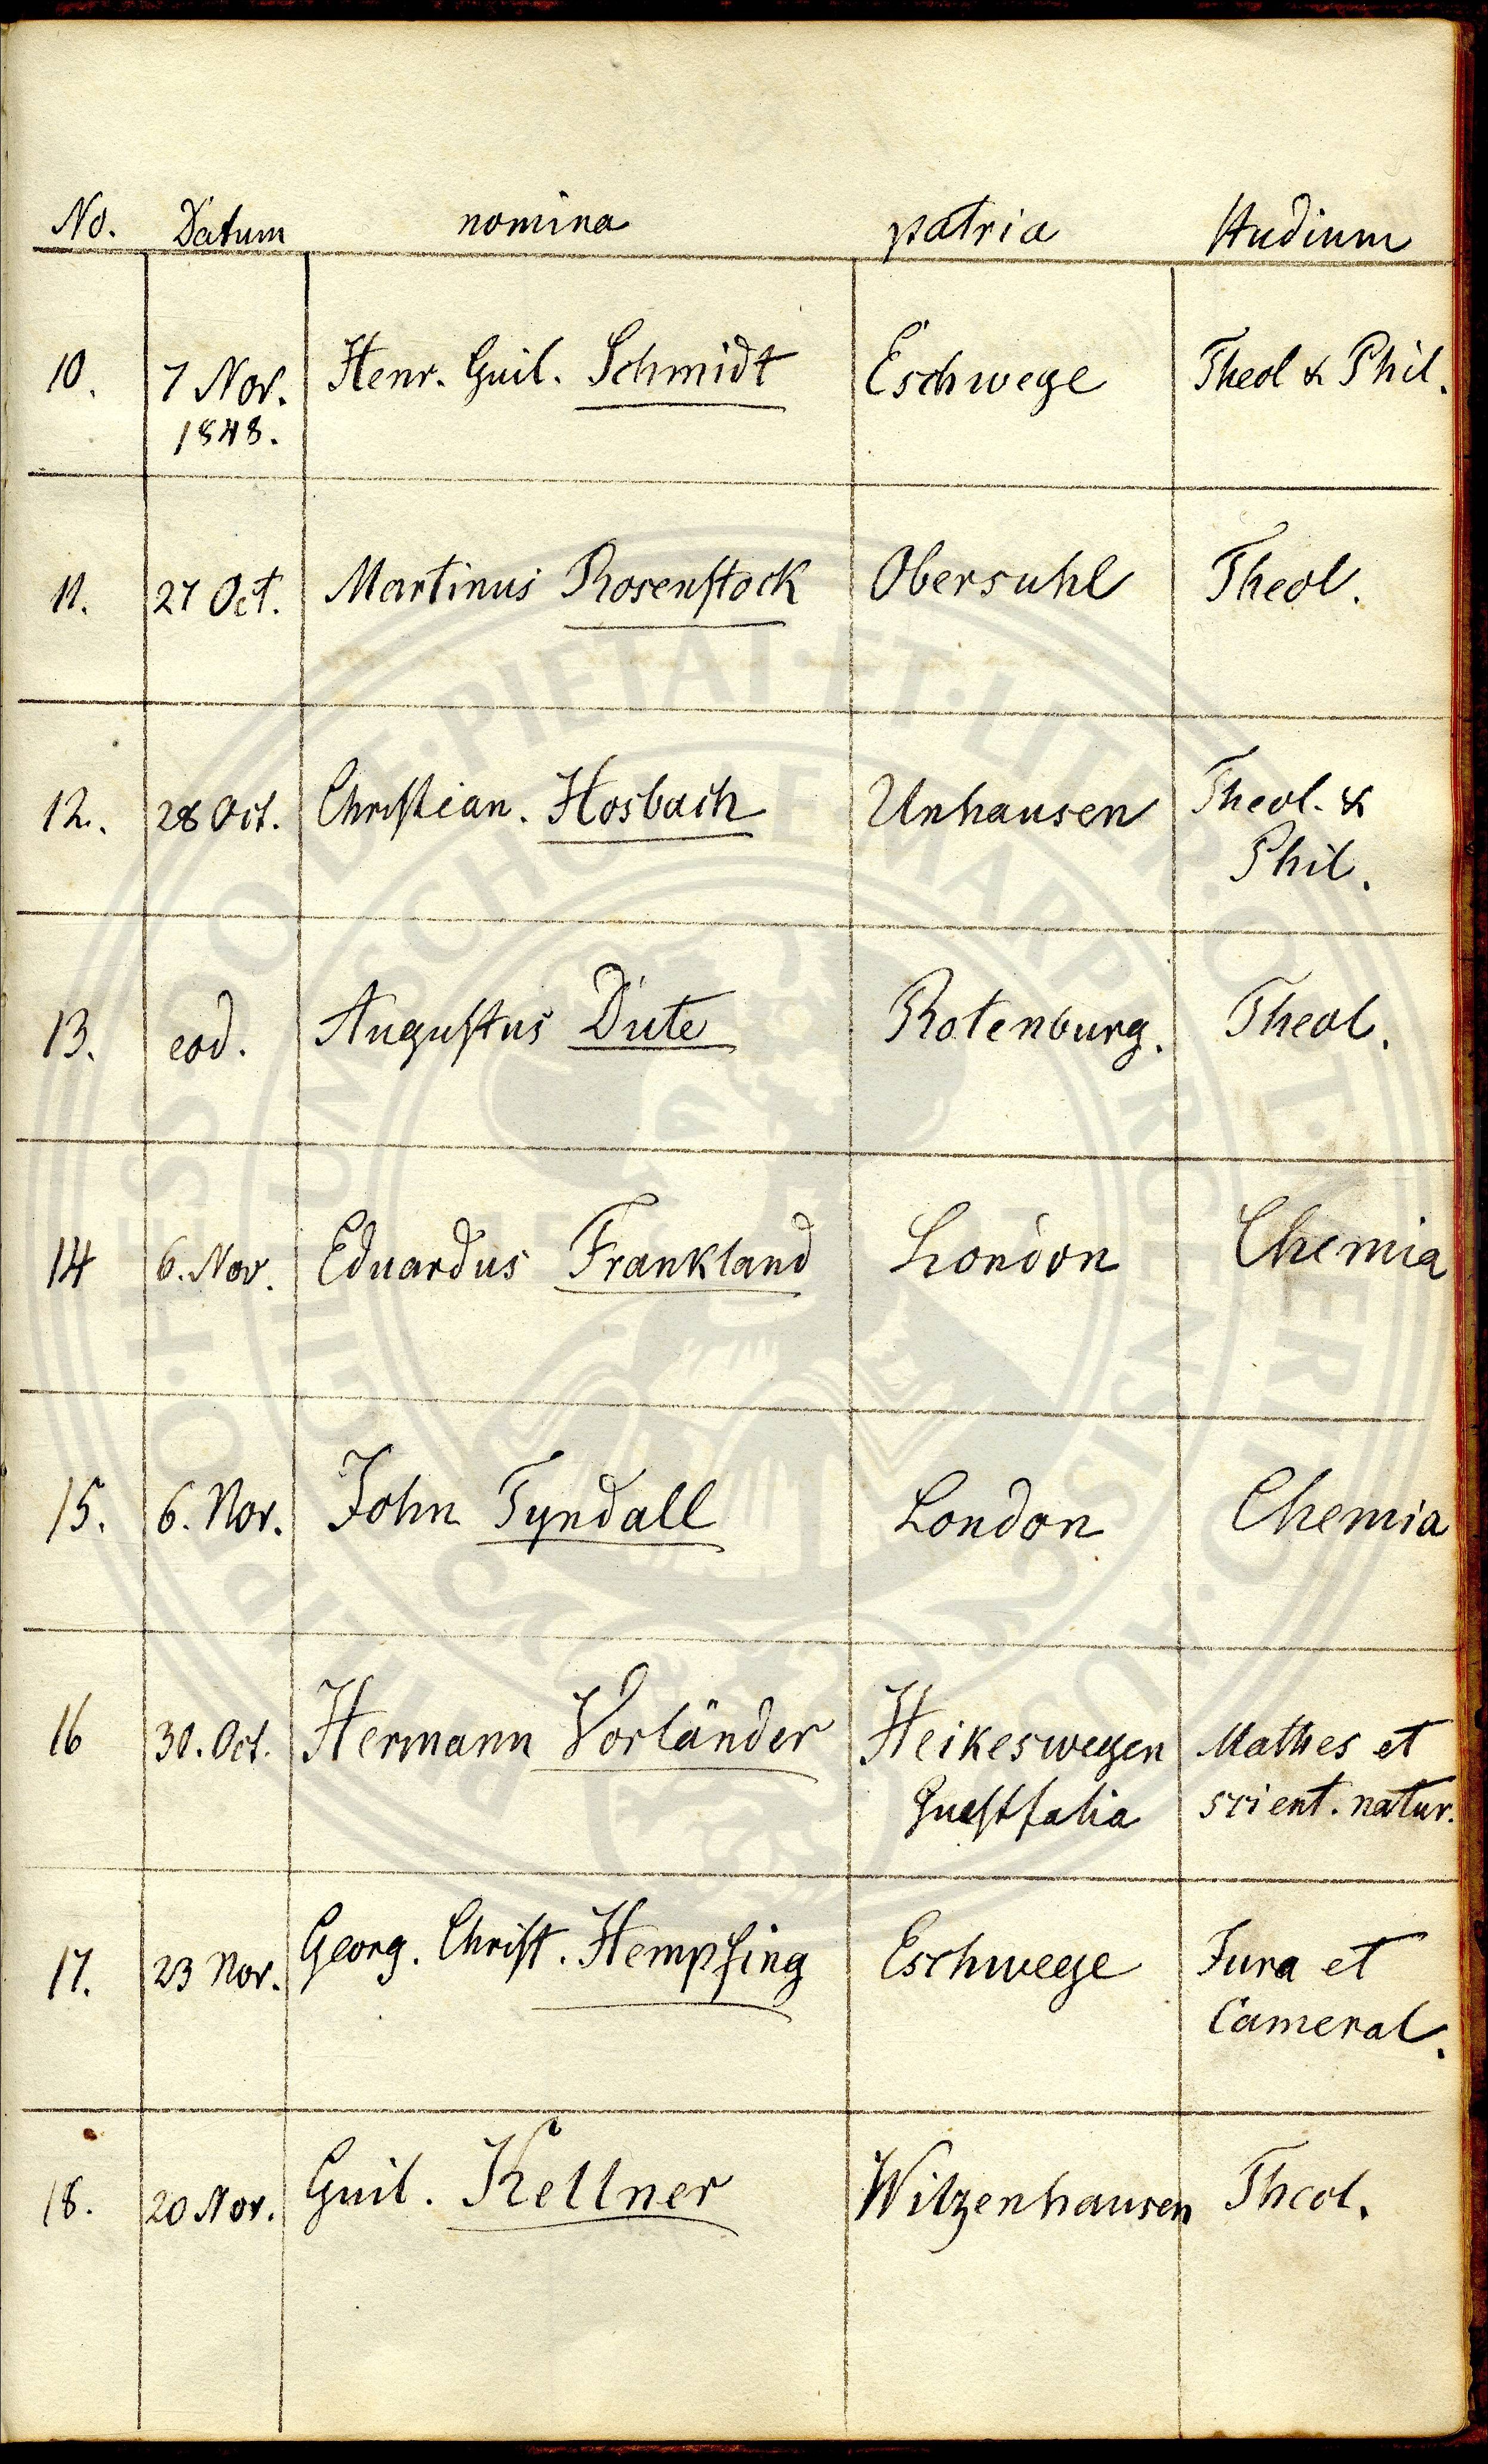 No. Datum nomina patria Studium
10. 7 Nov. Henr. Guil. Schmidt Eschwege Theol & Phil.
1848.
11. 27 Oct. Martinus Rosenstock Obersuhl Theol.
12. 28 Oct. Christian. Hosbach Unhausen Theol. &
Phil.
13. eod. Augustus Dute Rotenburg. Theol.
14 6. Nov. Eduardus Frankland London Chemia
15. 6. Nov. John Tyndall London Chemia
16 30. Oct. Hermann Vorländer Heikeswegen Mathes et
Guestfalia scient. natur.
17. 23 Nov. Georg. Christ. Hempfing Eschwege Jura et
Cameral.
18. 20 Nov. Guil. Kellner Witzenhausen Theol.